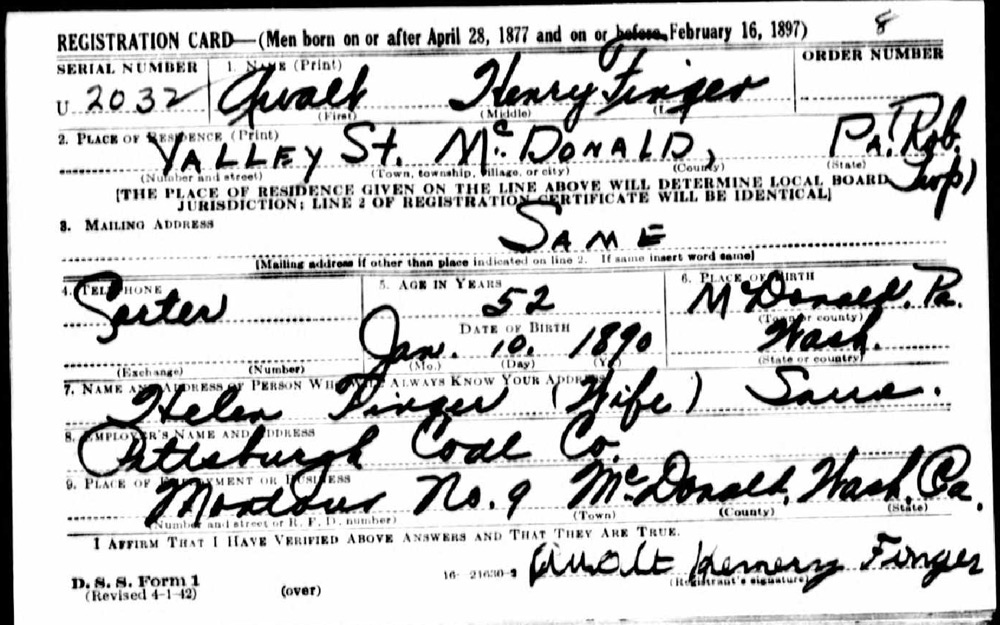 8
REGISTRATION CARD—(Men born on or after April 28, 1877 and on or before February 16, 1897)
SERIAL NUMBER 1. NAME (Print) ORDER NUMBER
U 2032 Henry Finger
(First) (Middle)
2. PLACE OF RESIDENCE (Print)
VALLEY St. McDONALD, Pa. Rob.
(Number and street) (Town, township, village, or city) (County) (State) Twp)
[THE PLACE OF RESIDENCE GIVEN ON THE LINE ABOVE WILL DETERMINE LOCAL BOARD
JURISDICTION; LINE 2 OF REGISTRATION CERTIFICATE WILL BE IDENTICAL]
3. MAILING ADDRESS
SAME
[Mailing address if other than place indicated on line 2. If same insert word same]
4. TELEPHONE 5. AGE IN YEARS 6. PLACE OF BIRTH
52 McDonald, Pa.
DATE OF BIRTH (Town or county)
Jan. 10, 1890 Wash.
(Exchange) (Number) (Mo.) (Day) (Yr.) (State or country)
7. NAME AND ADDRESS OF PERSON WHO WILL ALWAYS KNOW YOUR ADDRESS
Helen Finger (Wife) Same.
8. EMPLOYER'S NAME AND ADDRESS
Pittsburgh Coal Co.
9. PLACE OF EMPLOYMENT OR BUSINESS
Montour No. 9 McDonald, Wash, Pa.
(Number and street or R. F. D. number) (Town) (County) (State)
I AFFIRM THAT I HAVE VERIFIED ABOVE ANSWERS AND THAT THEY ARE TRUE.
D. S. S. Form 1
(Revised 4-1-42) (over) 16-21630-2 Finger
(Registrant's signature)